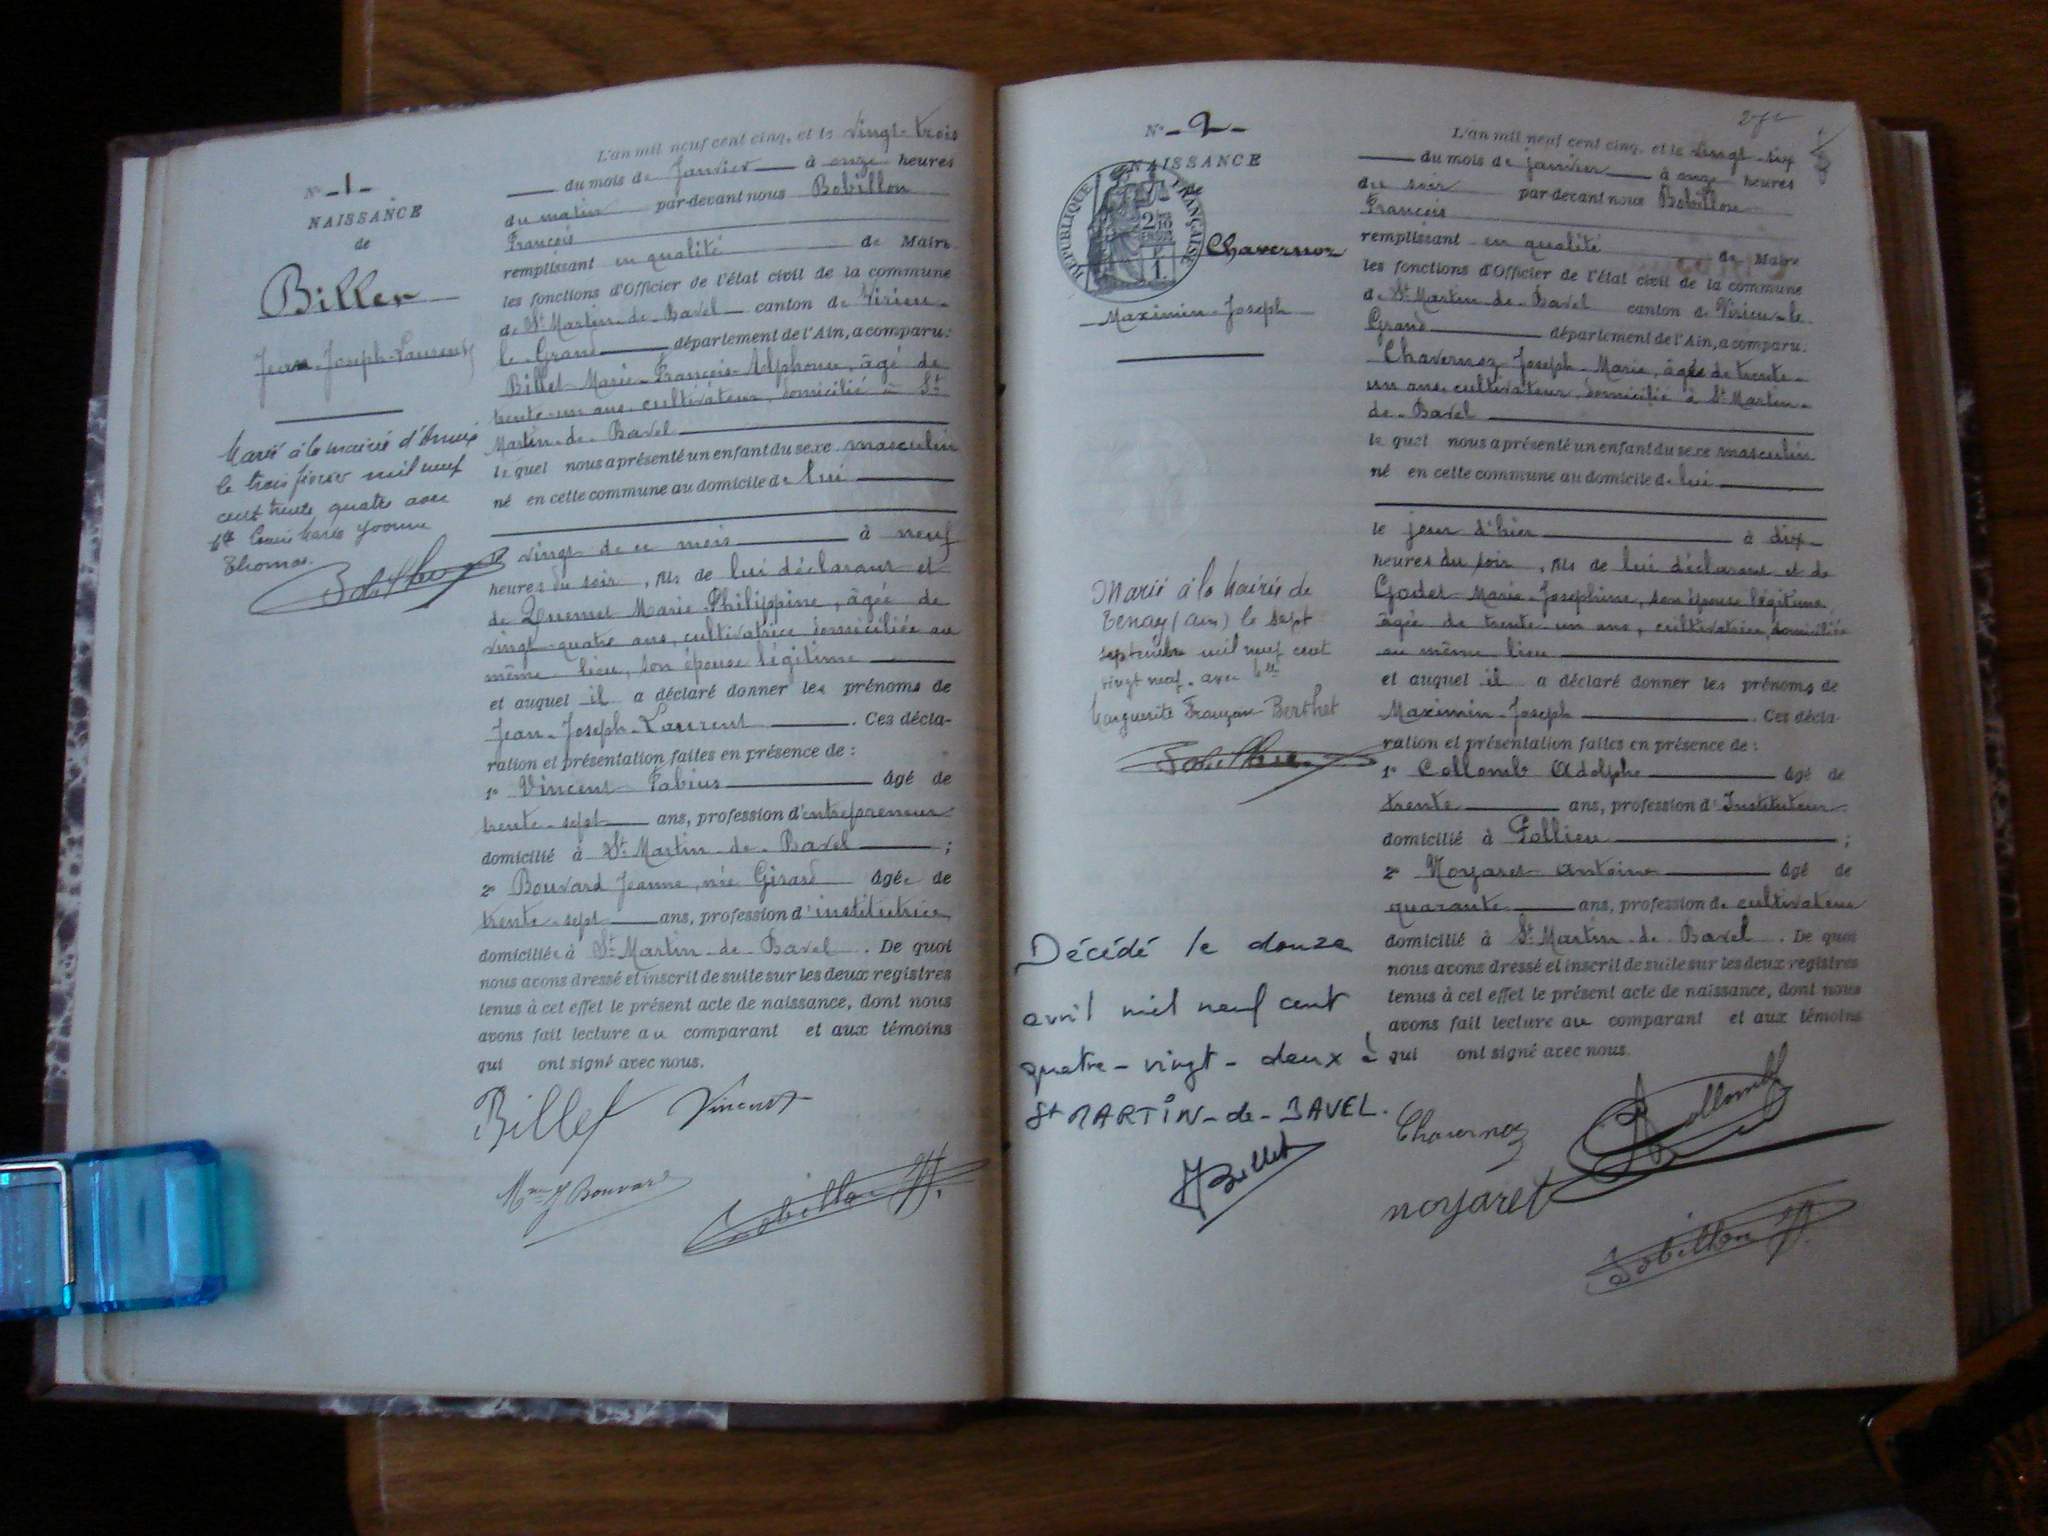 N° 1
NAISSANCE
de
Billet
Jean-Joseph-Laurent
Marié à la mairie d'
le trois février mil neuf
cent trente quatre avec
Marie Yvonne
Thomas.
L'an mil neuf cent cinq, et le vingt-trois
du mois de Janvier à onze heures
du matin par-devant nous Bobillon
François
remplissant en qualité de Maire
les fonctions d'Officier de l'état civil de la commune
de St Martin-de-Bavel canton de Virieu-
le-Grand département de l'Ain, a comparu:
Billet Marie-François-Alphonse, âgé de
trente-un ans, cultivateur, domicilié à St
Martin-de-Bavel
le quel nous a présenté un enfant du sexe masculin
né en cette commune au domicile de lui
vingt de ce mois à neuf
heures du soir, fils de lui déclarant et
de Marie-Philippine, âgée de
vingt-quatre ans, cultivatrice domiciliée au
même lieu, son épouse légitime
et auquel il a déclaré donner les prénoms de
Jean-Joseph-Laurent. Ces décla-
ration et présentation faites en présence de:
1° Vincent Fabius âgé de
trente-sept ans, profession d'entrepreneur
domicilié à St Martin-de-Bavel;
2° Bouvard Jeanne, née Girard âgée de
trente-sept ans, profession d'institutrice,
domiciliée à St Martin-de-Bavel. De quoi
nous avons dressé et inscrit de suite sur les deux registres
tenus à cet effet le présent acte de naissance, dont nous
avons fait lecture au comparant et aux témoins
qui ont signé avec nous.
Billet Vincent
Mme J Bouvard
Bobillon
N° 2
NAISSANCE
de
RÉPUBLIQUE FRANÇAISE
Chavernoz
Maximin-Joseph
Marié à la Mairie de
Tenay (Ain) le sept
septembre mil neuf cent
vingt neuf avec Mlle
Marguerite Françoise Berthet
Décédé le douze
avril mil neuf cent
quatre-vingt-deux à
St MARTIN-de-BAVEL.
Billet
L'an mil neuf cent cinq, et le vingt-six
du mois de janvier à onze heures
du soir par-devant nous Bobillon
François
remplissant en qualité de Maire
les fonctions d'Officier de l'état civil de la commune
de St Martin-de-Bavel canton de Virieu-le-
Grand département de l'Ain, a comparu:
Chavernoz Joseph-Marie, âgé de trente-
un ans, cultivateur, domicilié à St Martin-
de-Bavel
le quel nous a présenté un enfant du sexe masculin
né en cette commune au domicile de lui
le jour d'hier à dix
heures du soir, fils de lui déclarant et de
Godet Marie-Joséphine, son épouse légitime,
âgée de trente un ans, cultivatrice, domiciliée
au même lieu
et auquel il a déclaré donner les prénoms de
Maximin-Joseph. Ces décla-
ration et présentation faites en présence de:
1° Collomb Adolphe âgé de
trente ans, profession d'Instituteur
domicilié à Pollieu;
2° Noyaret Antoine âgé de
quarante ans, profession de cultivateur
domicilié à St Martin-de-Bavel. De quoi
nous avons dressé et inscrit de suite sur les deux registres
tenus à cet effet le présent acte de naissance, dont nous
avons fait lecture au comparant et aux témoins
qui ont signé avec nous.
Chavernoz Collomb
noyaret
Bobillon